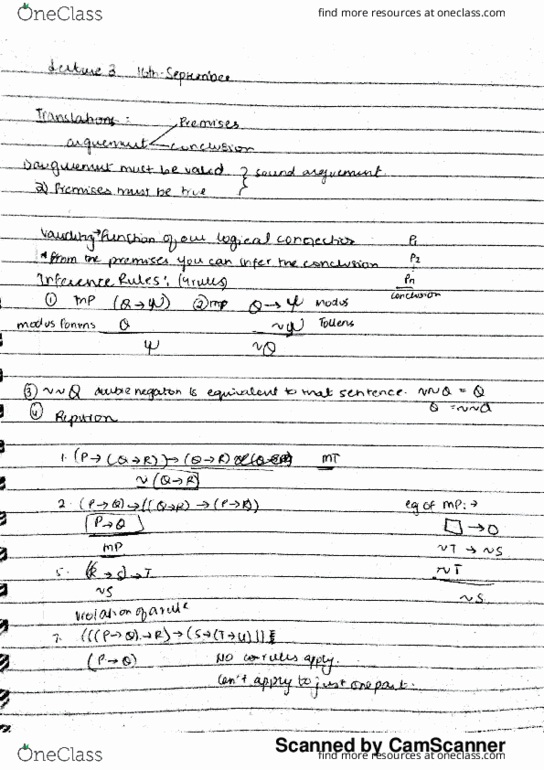 OneClass
find more resources at oneclass.com
Lecture 3 16th September
Translations:
arguement Premises
conclusion
1) arguement must be valid } sound arguement
2) Premises must be true
Validity → function of our logical connectives P1
*From the premises you can infer the conclusion P2
Inference Rules: (4 rules) Pn
conclusion
① MP (Q → Ψ) ② Q → Ψ modus
modus Ponens Q ~Ψ Tollens
Ψ ~Q
③ ~~Q double negation is equivalent to that sentence. ~~Q = Q
Q = ~~Q
④
1. (P → (Q → R)) → (Q → R) MT
~(Q → R)
2. (P → Q) → ((Q → R) → (P → R)) eg of MP: →
(P → Q) □ → O
MP ~T → ~S
5. (R → S) → T ~T
~S ~S
violation of a rule
7. (((P → Q) → R) → (S → (T → U)))
(P → Q) NO rules apply.
Can't apply to just one part.
Scanned by CamScanner
OneClass
find more resources at oneclass.com